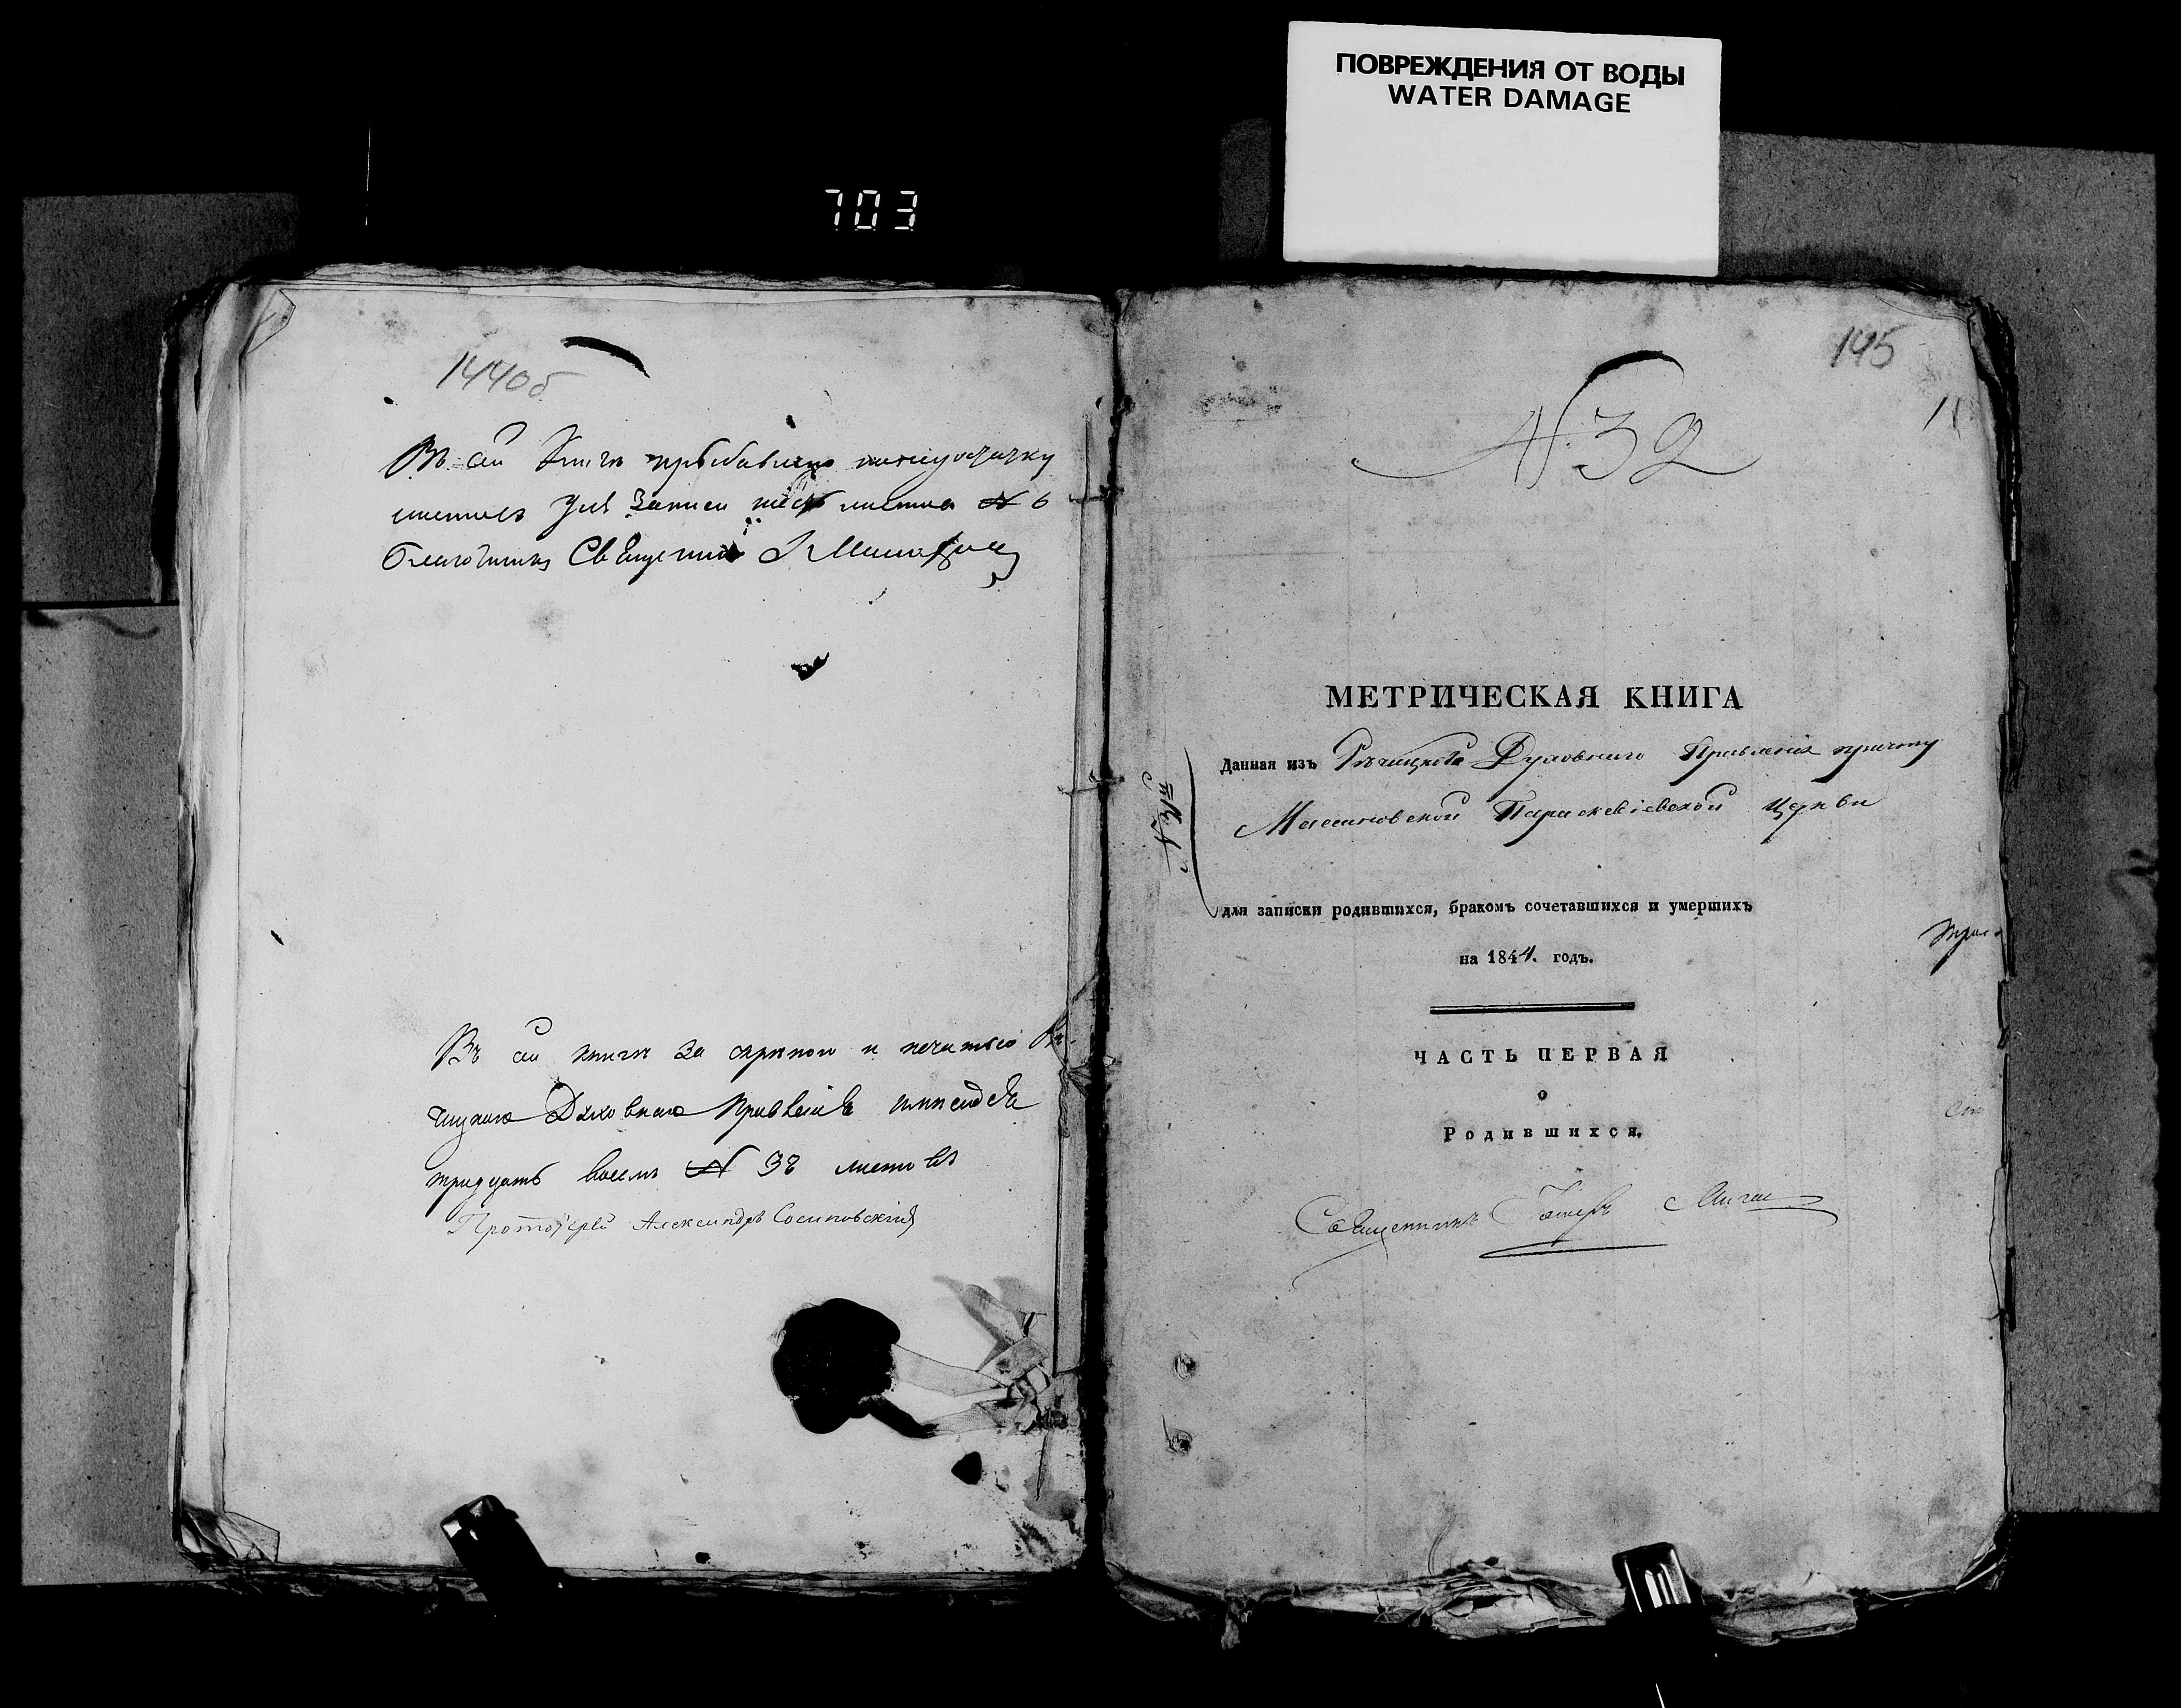 ПОВРЕЖДЕНИЯ ОТ ВОДЫ
WATER DAMAGE
703
144об
Въ сей Книгѣ прибавлено
листовъ для Записи шесть листовъ № 6
Благочинный Священникъ
Въ сей книгѣ за скрѣпою и печатью Рѣ-
чицкаго Духовнаго Правленія
тридцать восемь № 38 листовъ
Протоіерей Александръ Сосиновскій
145
№ 32
МЕТРИЧЕСКАЯ КНИГА
Данная изъ Рѣчицкого Духовного Правленія причту
Параскевіевской церкви
для записки родившихся, бракомъ сочетавшихся и умершихъ
на 1844. годъ.
ЧАСТЬ ПЕРВАЯ
о
Родившихся.
Священникъ